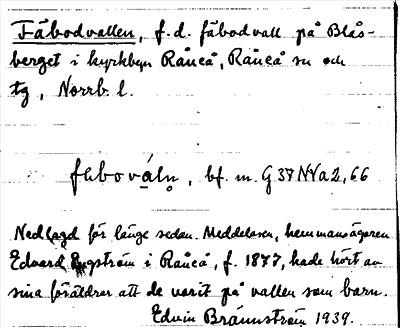 Fäbodvallen, f. d. fäbodvall på Blås-
berget i kyrkbyn Råneå, Råneå sn och
tg, Norrb. l.
bf. m. G 37 NVa2, 66
Nedlagd för länge sedan. Meddelaren, hemmansägaren
Edvard Engström i Råneå, f. 1877, hade hört av
sina föräldrar att de varit på vallen som barn.
Edvin Brännström 1939.